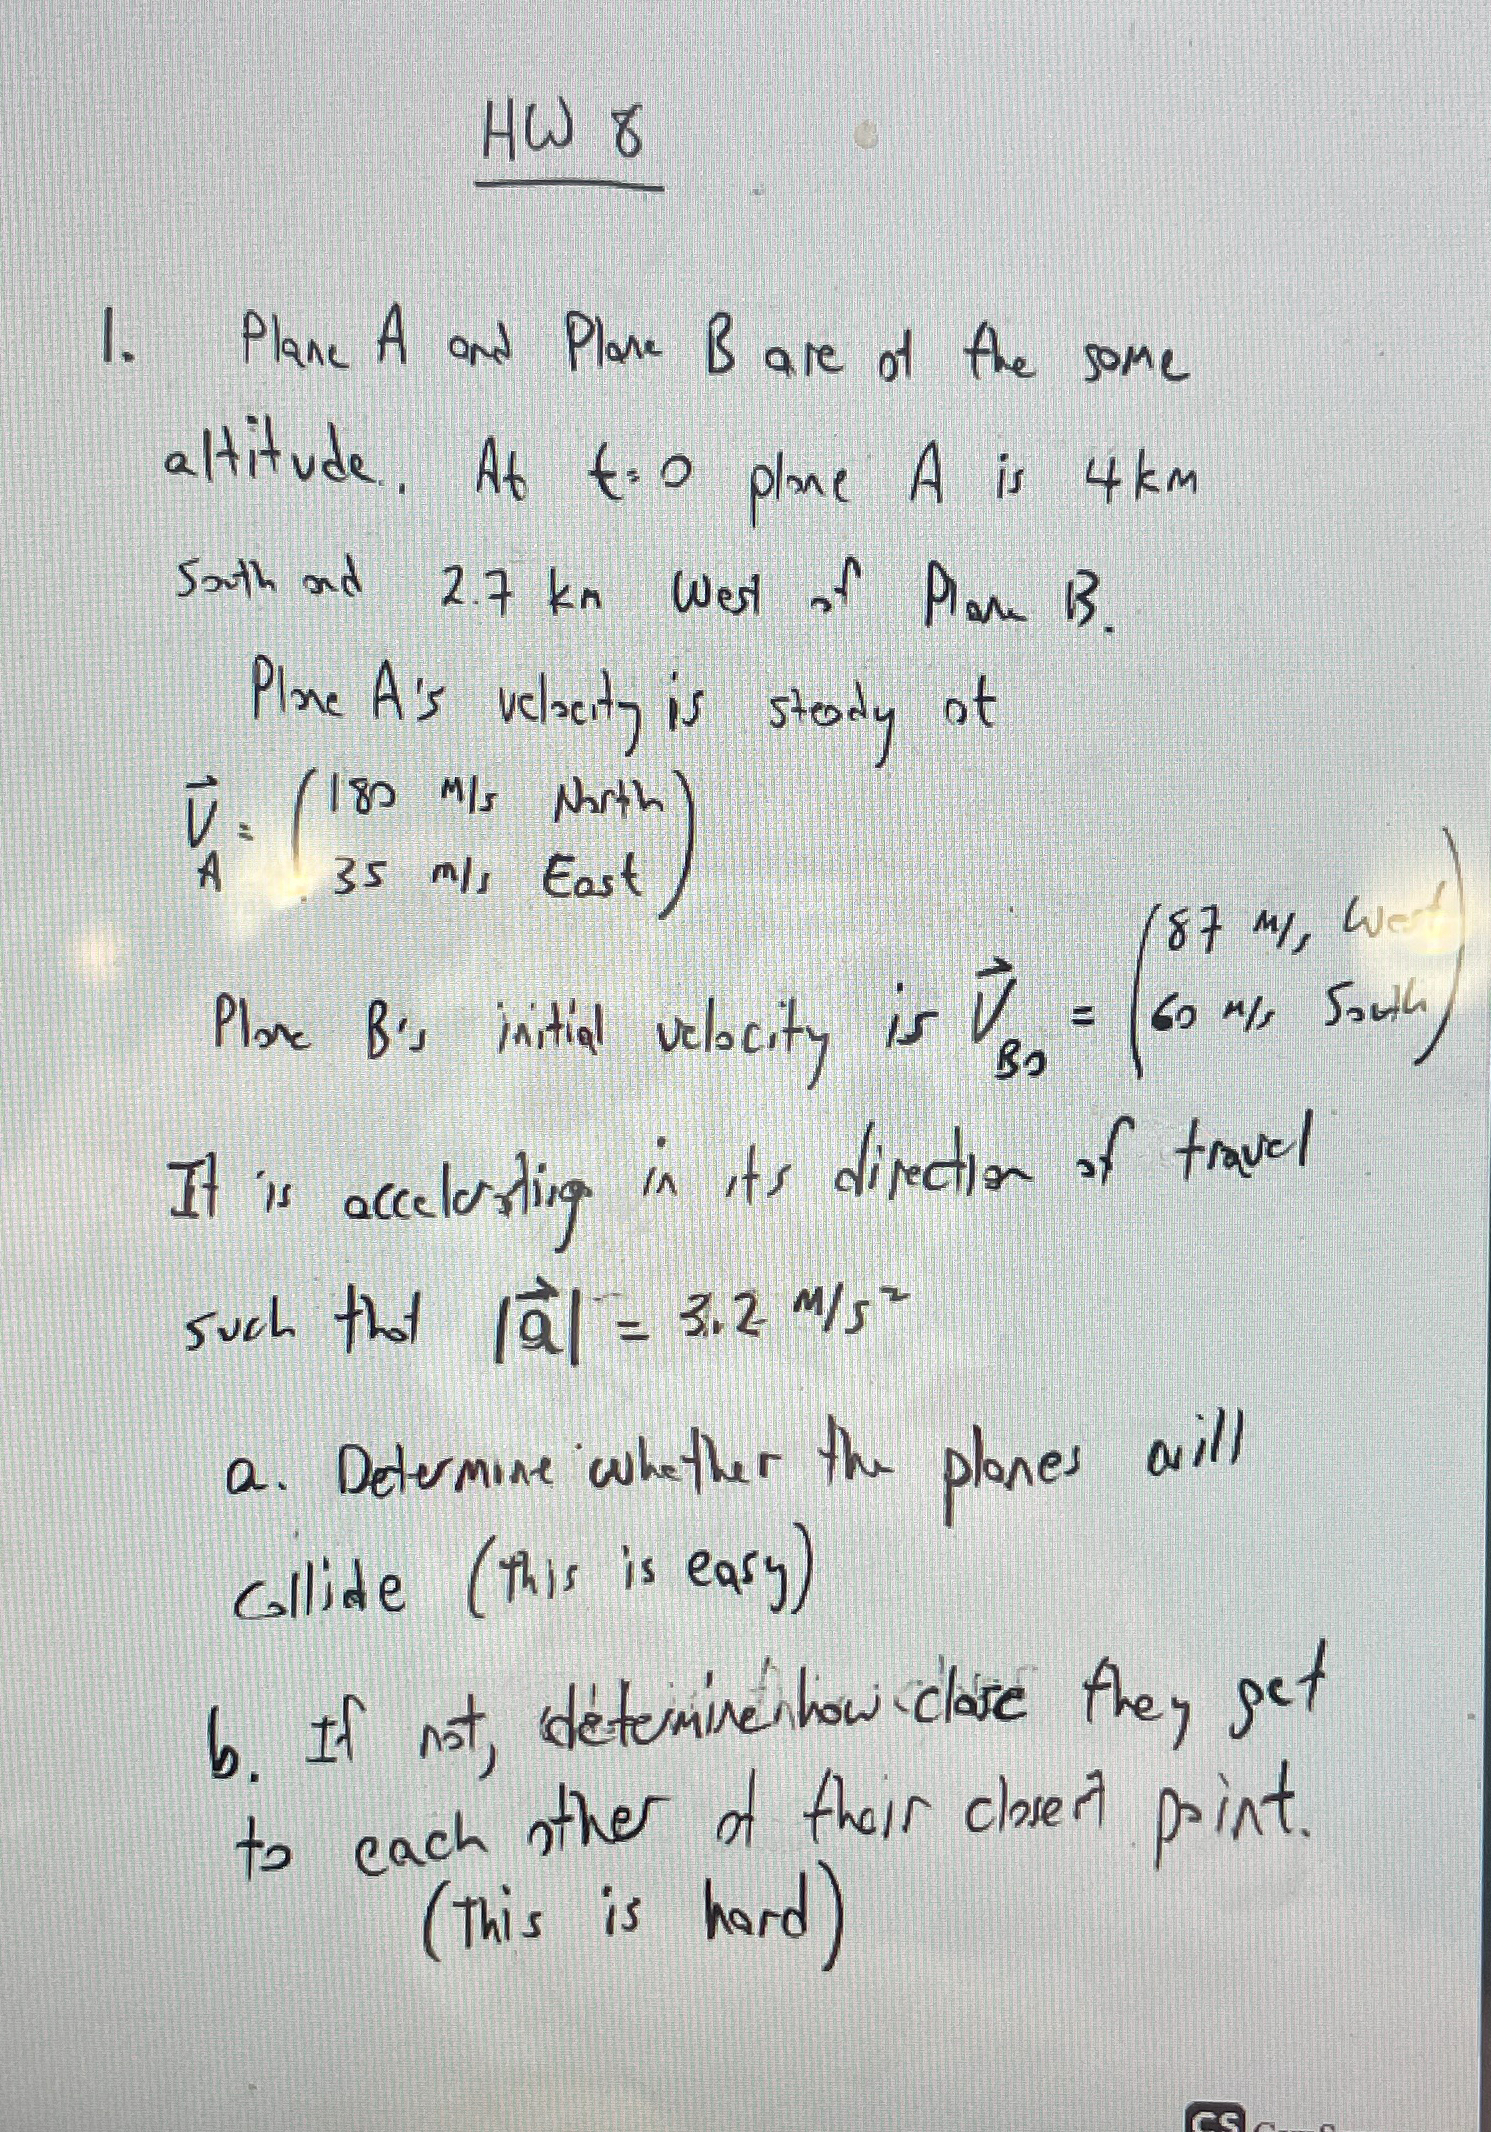 HW 8
1. Plane A and Plane B are at the same
altitude. At t=0 plane A is 4 km
South and 2.7 km West of Plane B.
Plane A's velocity is steady at
V⃗_A = (180 m/s North
35 m/s East)
Plane B's initial velocity is V⃗_B0 = (87 m/s West
60 m/s South)
It is accelerating in its direction of travel
such that |a⃗| = 3.2 m/s²
a. Determine whether the planes will
collide (this is easy)
b. If not, determine how close they get
to each other at their closest point.
(this is hard)
CS